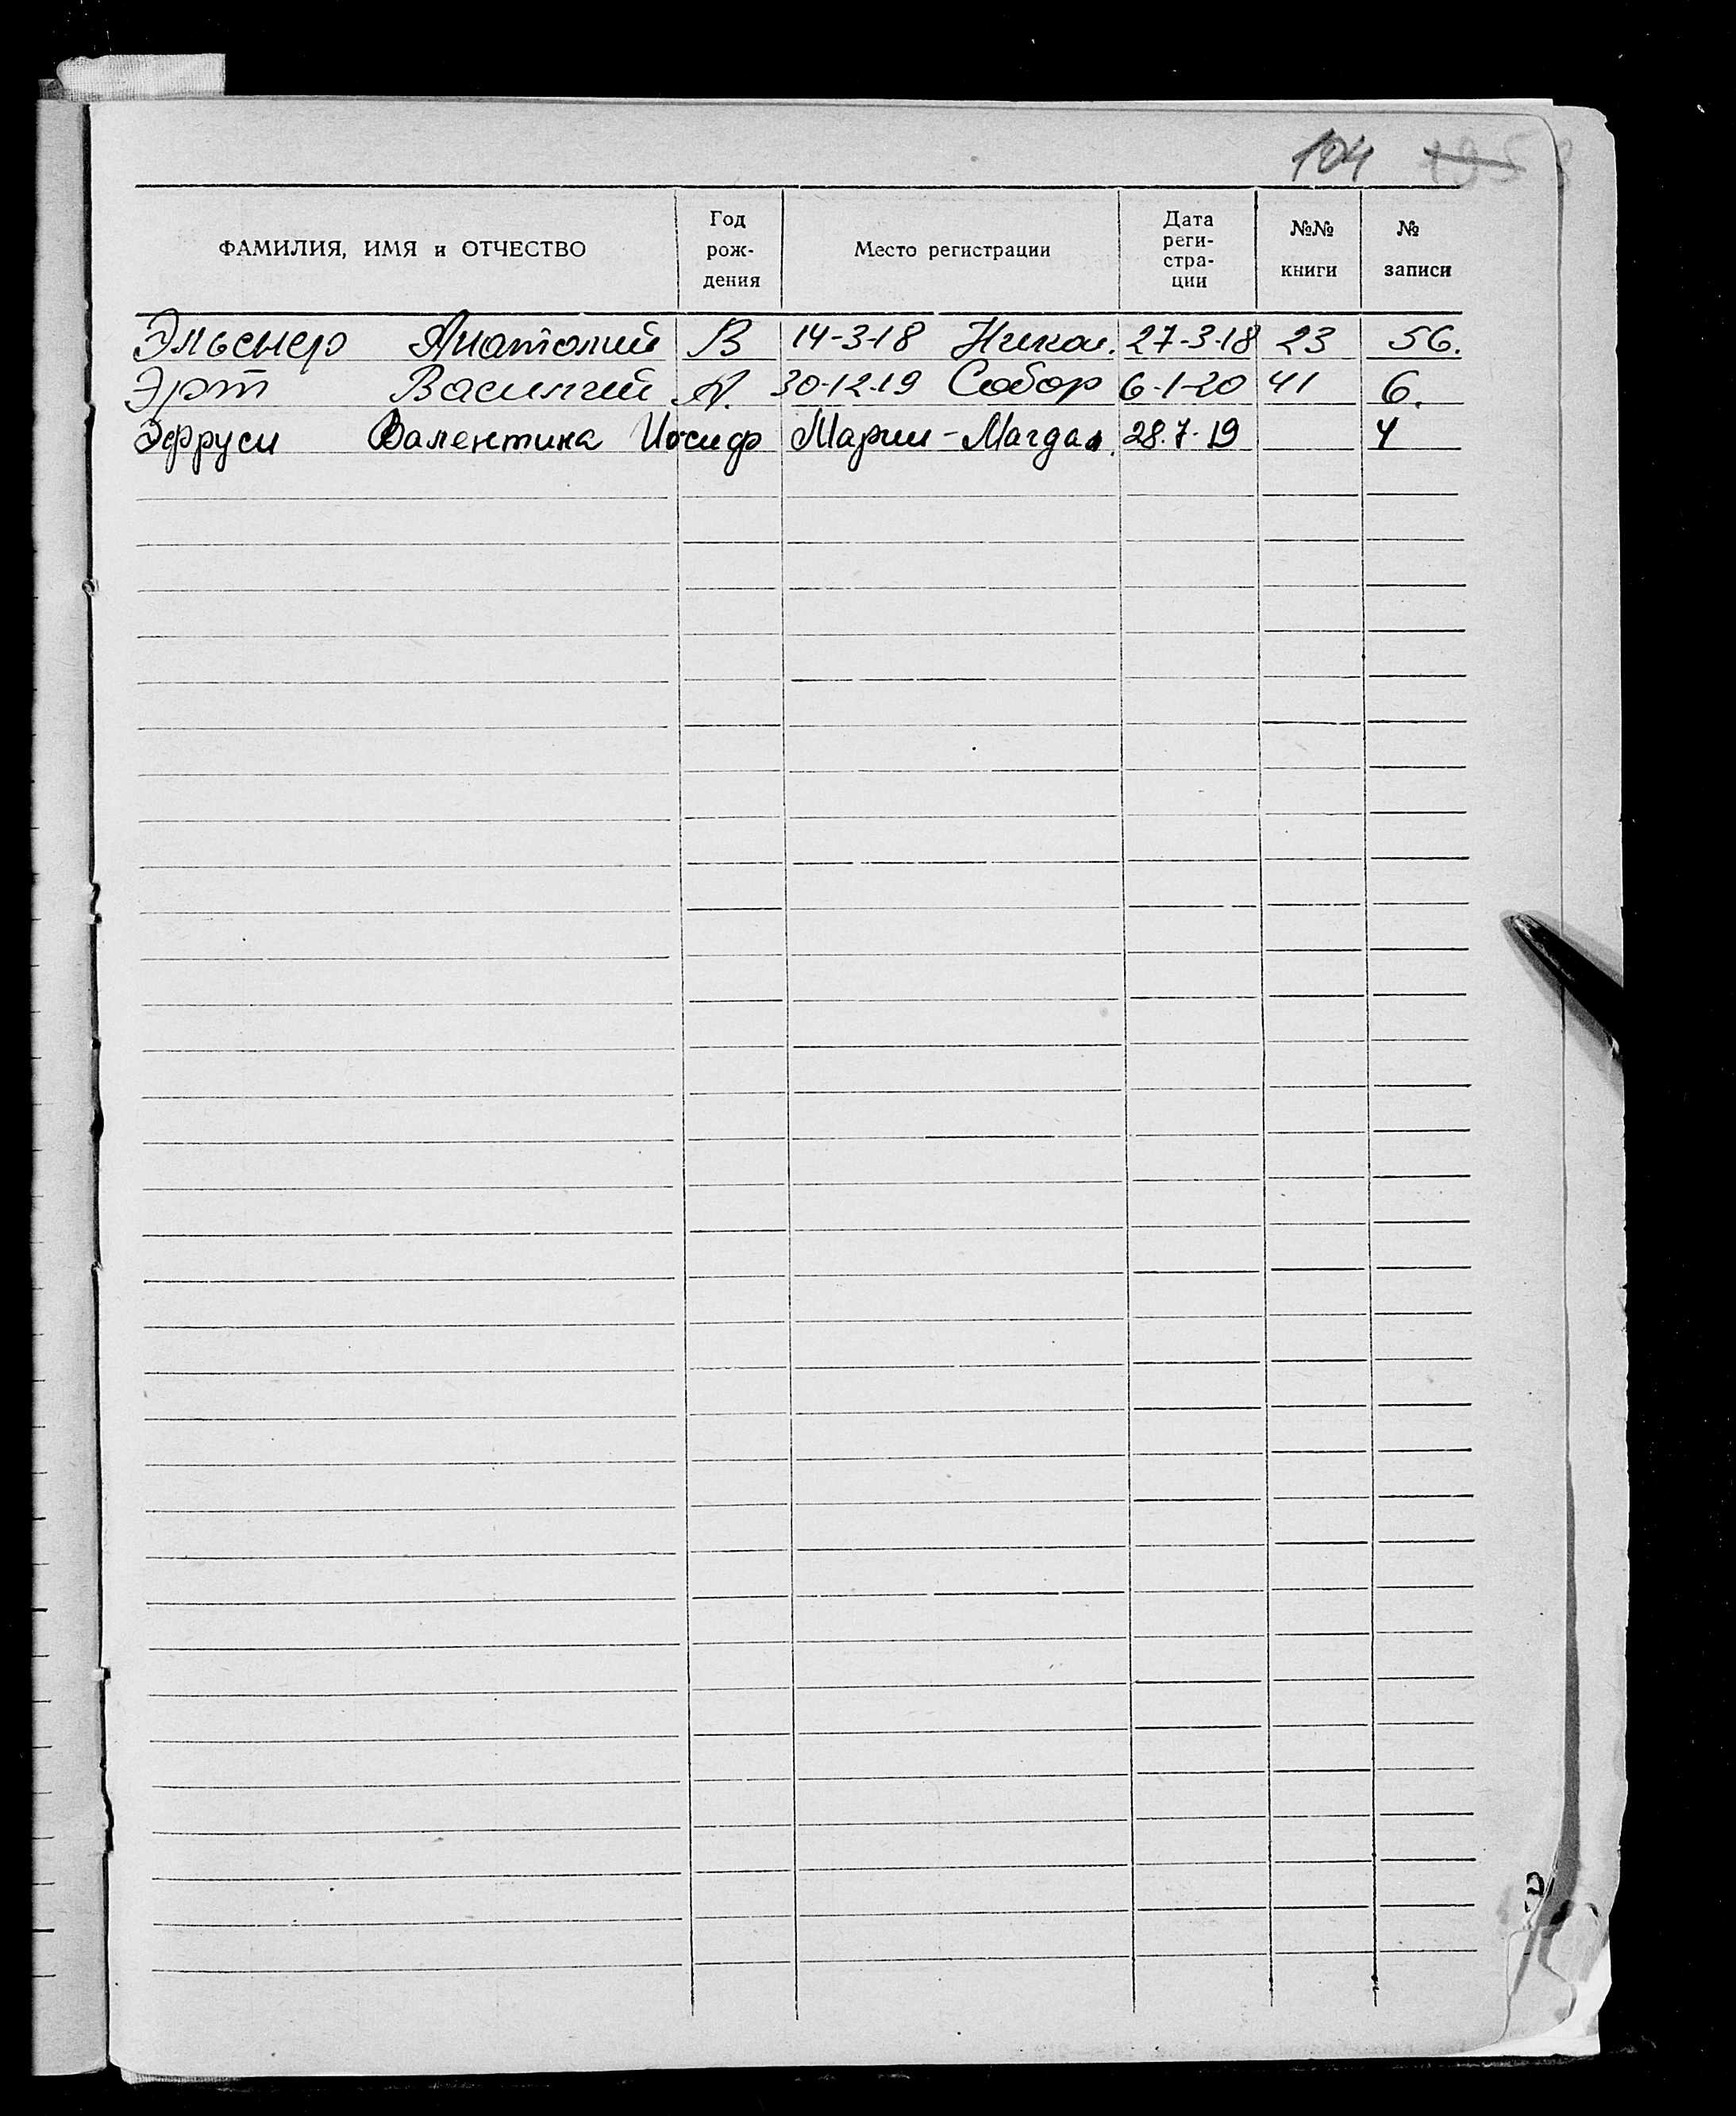 104 195
ФАМИЛИЯ, ИМЯ и ОТЧЕСТВО Год рож- дения Место регистрации Дата реги- стра- ции №№ книги № записи
Эльснер Анатолий В 14-3-18 Никол. 27-3-18 23 56.
Эрт Василий А. 30-12-19 Собор 6-1-20 41 6.
Эфруси Валентина Иосиф Марии-Магдал. 28.7.19 4